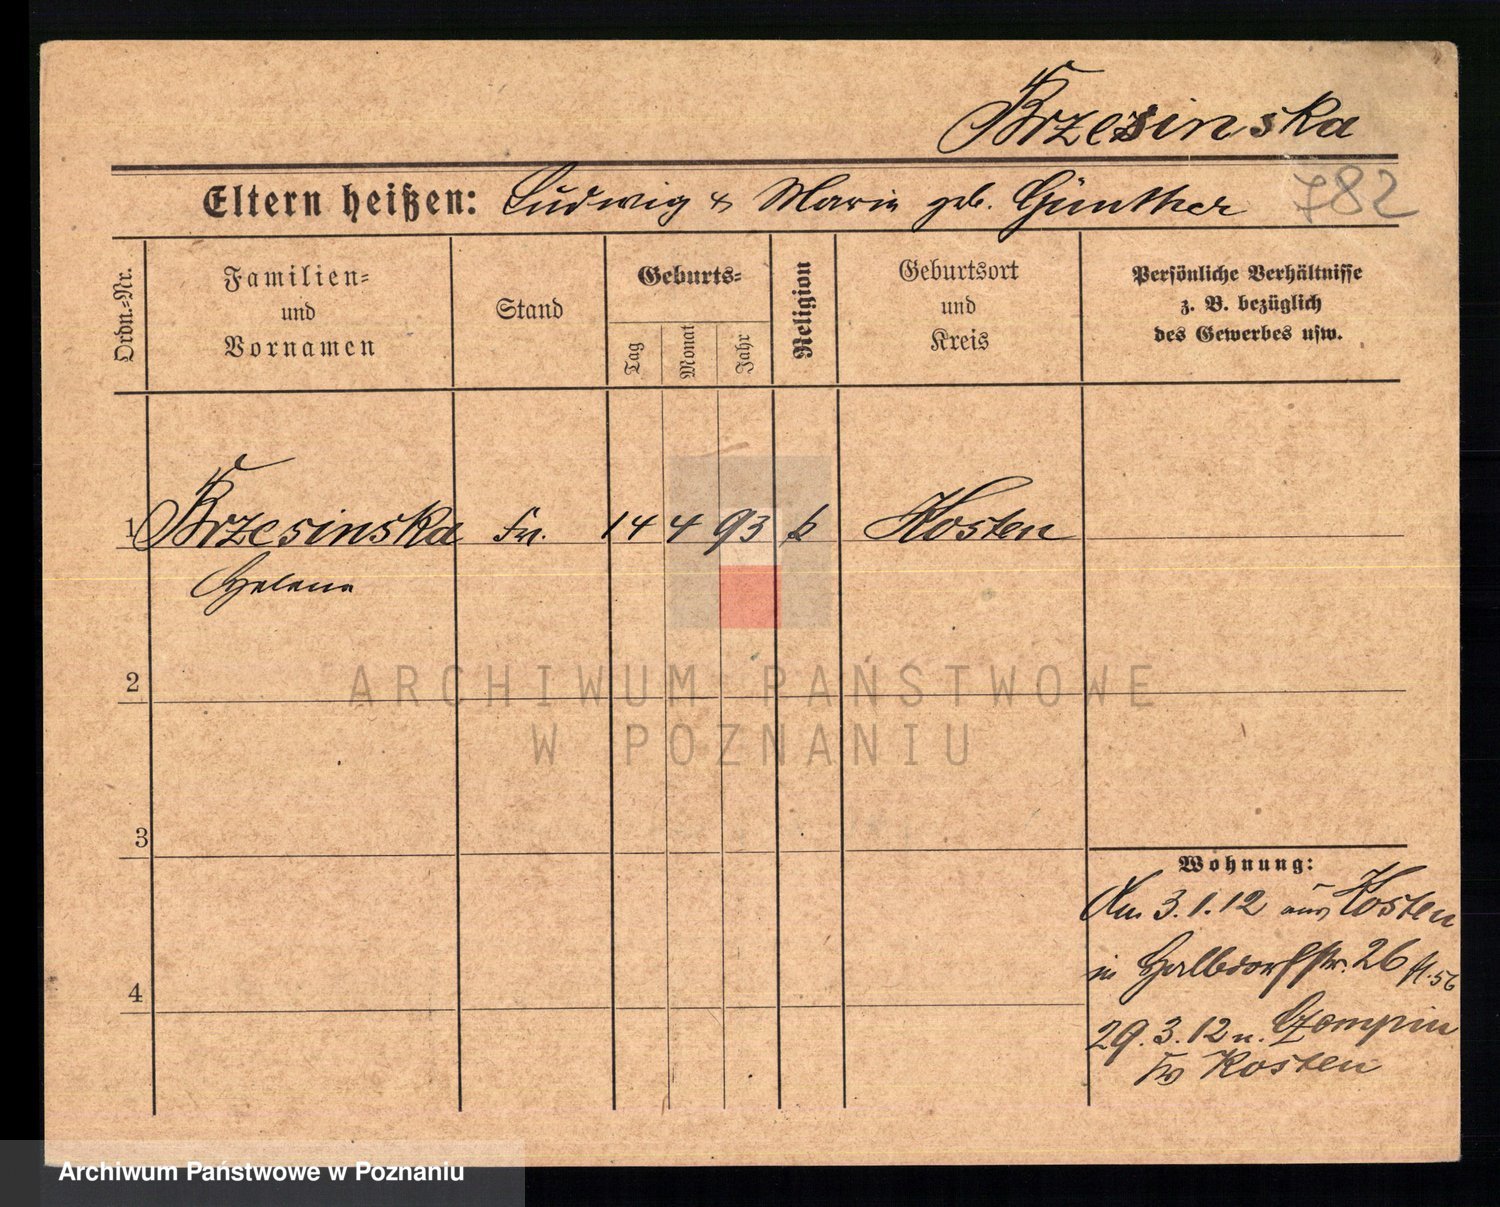 Brzezinska
Eltern heißen: Ludwig & Marie geb. Günther
782
Ordn.=Nr.
Familien=
und
Vornamen
Stand
Geburts=
Tag
Monat
Jahr
Religion
Geburtsort
und
Kreis
Persönliche Verhältnisse
z. B. bezüglich
des Gewerbes usw.
1 Brzesinska 14 4 93 k Kosten
Helene
ARCHIWUM PAŃSTWOWE
W POZNANIU
2
3
4
Wohnung:
Am 3.1.12 aus Kosten
in Halbdorfstr. 26
29.3.12 n. Czempin
Kosten
Archiwum Państwowe w Poznaniu